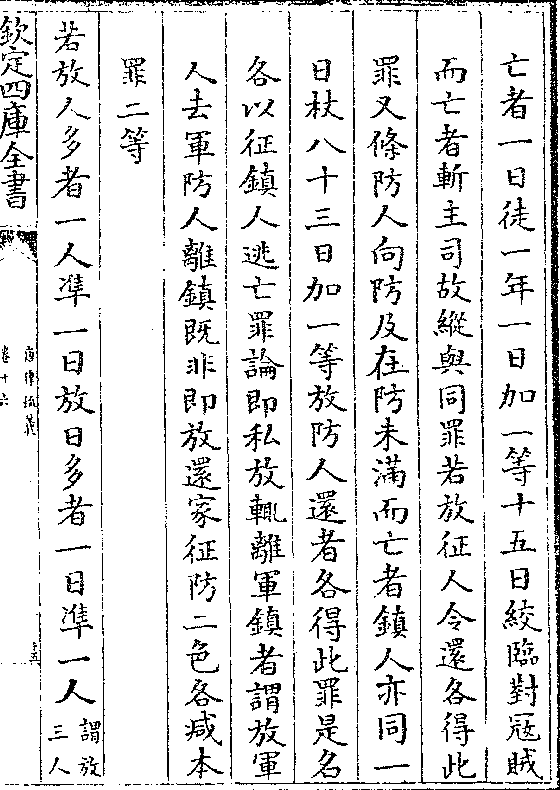 亡者一日徒一年一日加一等十五日絞臨對冦賊
而亡者斬主司故縱與同罪若放征人令還各得此
罪又條防人向防及在防未滿而亡者鎮人亦同一
日杖八十三日加一等放防人還者各得此罪是名
各以征鎮人逃亡罪論即私放輒離軍鎮者謂放軍
人去軍防人離鎮既非即放還家征防二色各减本
罪二等
若放人多者一人凖一日放日多者一日凖一人謂放
三人
欽定四庫全書
唐律疏義
卷十六